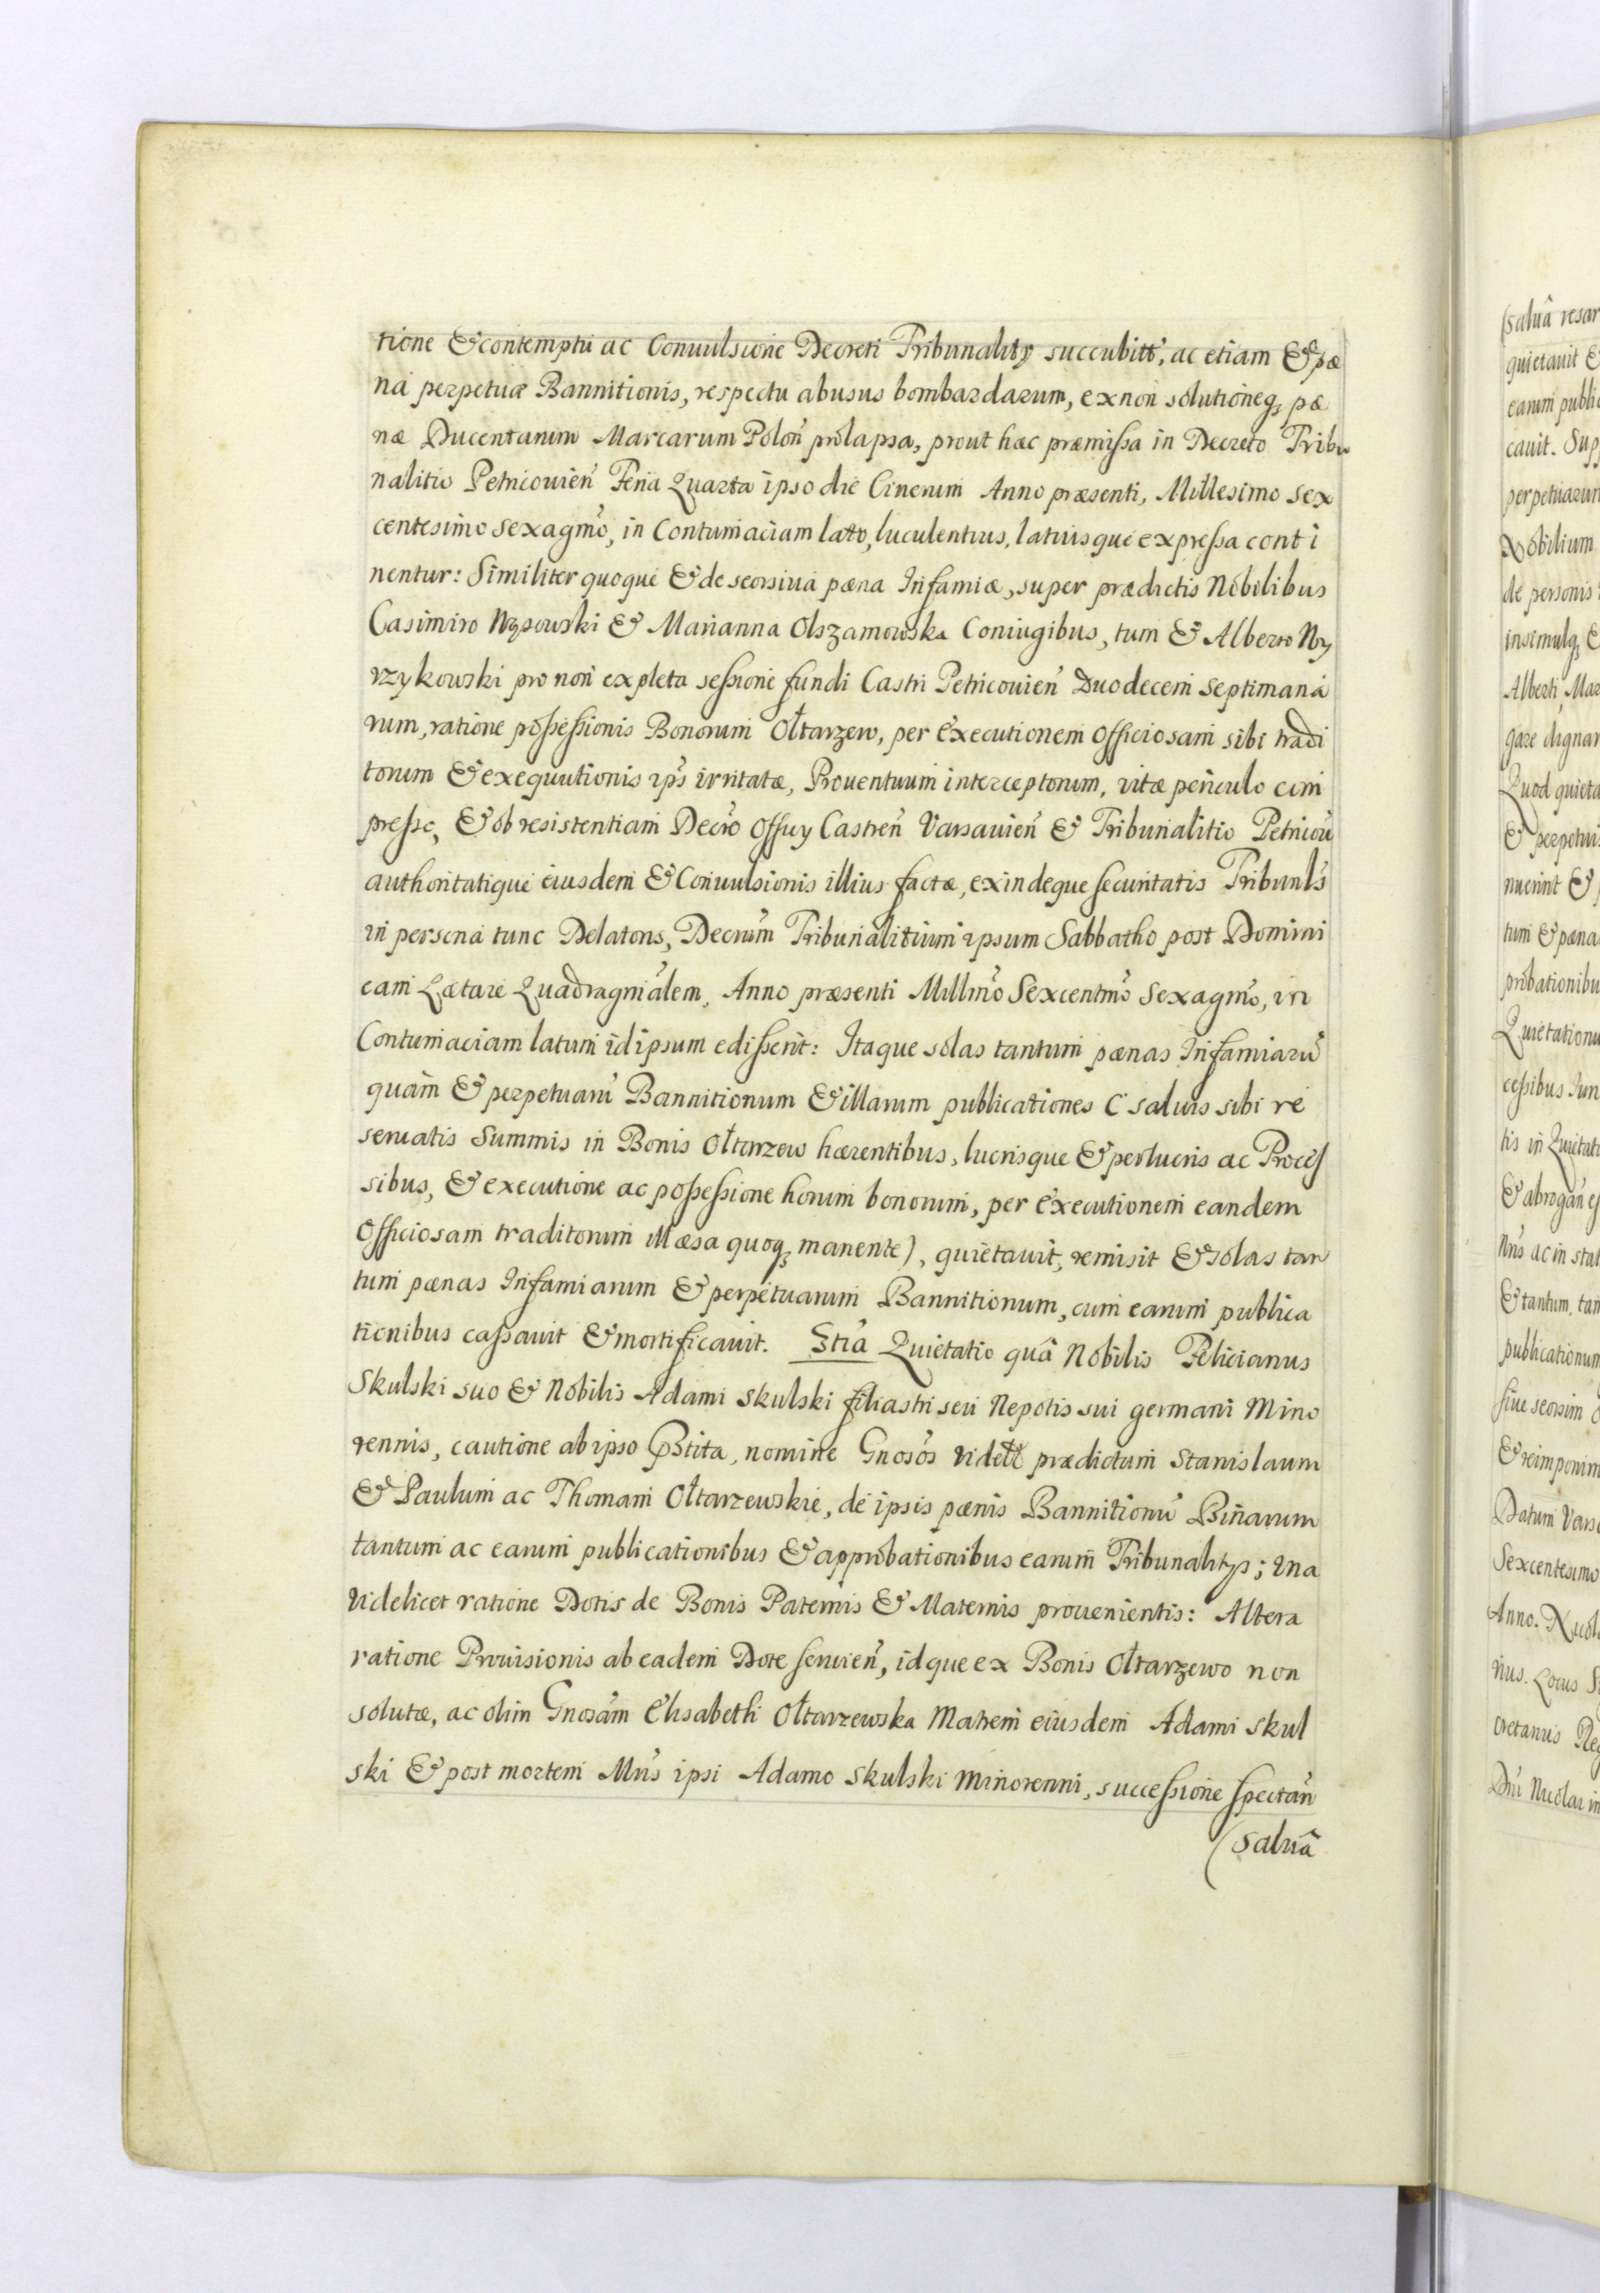 tione & contemptu ac Conuulsione Decreti Tribunalitÿ succubitt, ac etiam & pæ
na perpetuæ Bannitionis, respectu abusus bombardarum, ex non solutioneq; pæ
næ Ducentarum Marcarum Polon̄ prolapsa, prout hæc præmissa in Decreto Tribu
nalitio Petricouien̄ Feria Quarta ipso die Cinerum Anno præsenti, Millesimo sex
centesimo sexagmo, in Contumaciam lato, luculentius, latiusque expressa conti
nentur: Similiter quoque & de seorsiua pæna Infamiæ, super prædictis Nobilibus
Casimiro & Marianna Olszamowska Coniugibus, tum & Alberto
rzykowski pro non expleta sessione fundi Castri Petricouien̄ Duodecem septimana
rum, ratione possessionis Bonorum Ołtarzew, per Executionem Officiosam sibi tradi
torum & exequutionis ips̄ irritatæ, Prouentuum interceptorum, vitæ periculo cum
presso, & ob resistentiam Decr̄o Officy Castren̄ Varsauien̄ & Tribunalitio Petricou̅
authoritatique eiusdem & Conuulsionis illius factæ, exindeque securitatis Tribunls̄
in persona tunc Delatoris, Decrum̄ Tribunalitium ipsum Sabbatho post Domini
cam Lætare Quadragmālem, Anno præsenti Millmo Sexcentmo Sexagmo, in
Contumaciam latum idipsum edisserit: Itaque solas tantum pænas Infamiarū
quam & perpetuarū Bannitionum & illarum publicationes (saluis sibi re
seruatis Summis in Bonis Ołtarzew hærentibus, lucrisque & perlucris ac Proces
sibus, & executione ac possessione horum bonorum, per Executionem eandem
Officiosam traditorum illæsa quoq; manente), quietauit, remisit & solas tan
tum pænas Infamiarum & perpetuarum Bannitionum, cum earum publica
tionibus cassauit & mortificauit. 3tia Quietatio quâ Nobilis Felicianus
Skulski suo & Nobilis Adami Skulski filiastri seu Nepotis sui germani Mino
rennis, cautione ab ipso pstita, nomine Gnosos videltt prædictum Stanislaum
& Paulum ac Thomam Ołtarzewskie, de ipsis pænis Bannitionū Binarum
tantum ac earum publicationibus & approbationibus earum Tribunalitÿs; Vna
videlicet ratione Dotis de Bonis Paternis & Maternis prouenientis: Altera
ratione Prouisionis ab eadem Dote seruien̄, idque ex Bonis Ołtarzewo non
solutæ, ac olim Gnosam Elisabeth Ołtarzewska Matrem eiusdem Adami Skul
ski & post mortem Mris ipsi Adamo Skulski Minorenni, successione spectan̄
(salua